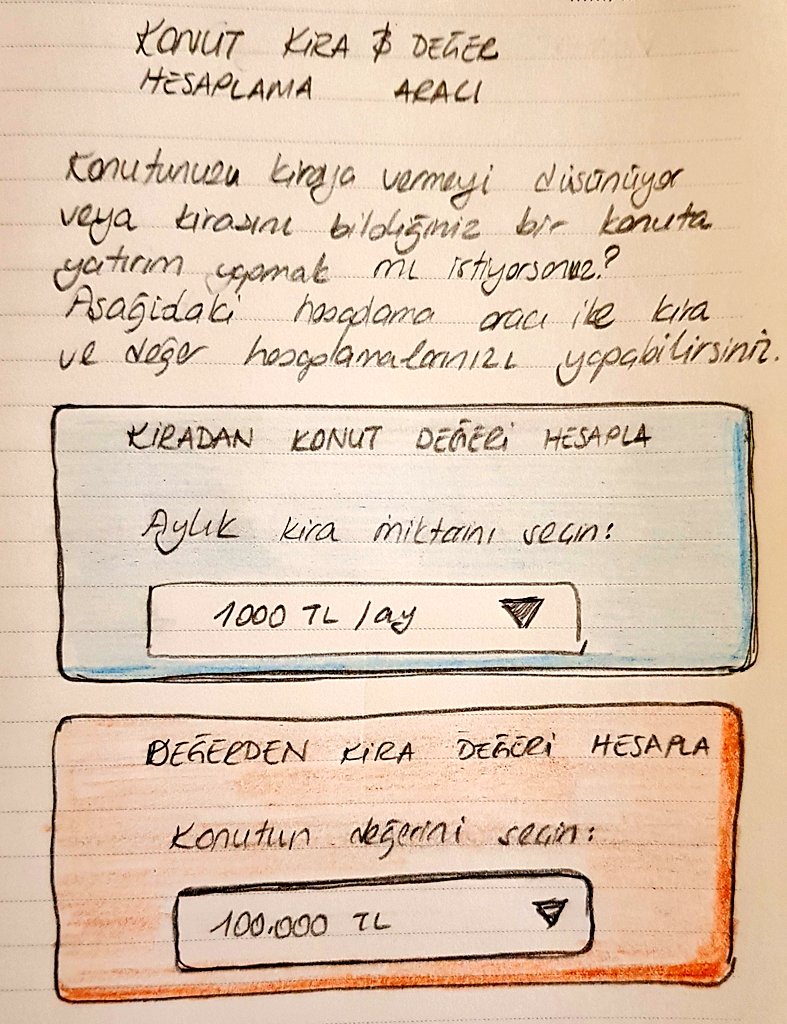 KONUT KIRA & DEĞER
HESAPLAMA ARACI
Konutunuzu kiraya vermeyi düşünüyor
veya kirasını bildiğiniz bir konuta
yatırım yapmak mı istiyorsunuz?
Aşağıdaki hesaplama aracı ile kira
ve değer hesaplamalarınızı yapabilirsiniz.
KİRADAN KONUT DEĞERİ HESAPLA
Aylık kira miktarını seçin:
1000 TL /ay
DEĞERDEN KİRA DEĞERİ HESAPLA
Konutun değerini seçin:
100.000 TL